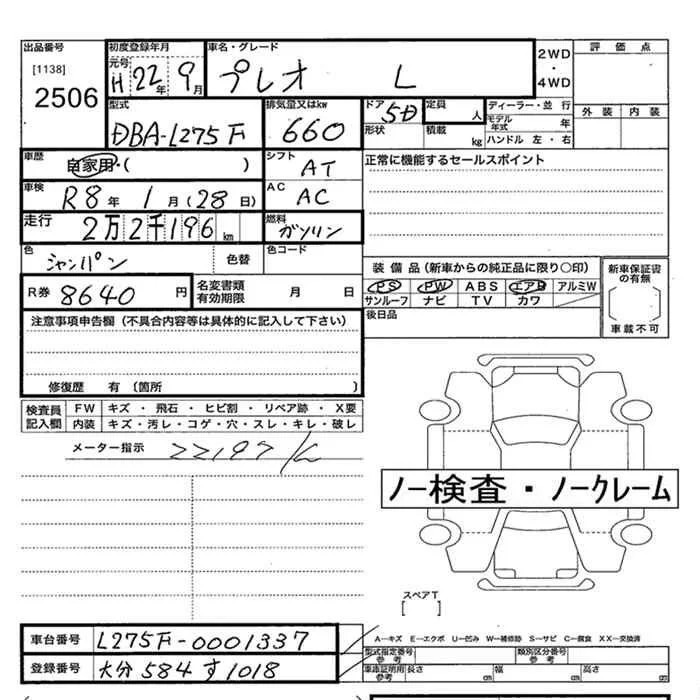 出品番号 初度登録年月 車名・グレード 2WD・4WD 評価点
[1138] 元号
2506 H 22年 9月 プレオ L
型式 排気量又はkw ドア 5D 定員 人 ディーラー・並行 外装 内装
モデル年式 年
DBA-L275F 660 形状 積載 kg ハンドル 左・右
車歴 自家用・( ) シフト AT 正常に機能するセールスポイント
車検 R8年 1月(28日) AC AC
走行 2万2千196km 燃料 ガソリン
色 シャンパン 色替 色コード
装備品(新車からの純正品に限り〇印) 新車保証書の有無
R券 8640円 名変書類有効期限 月 日 PS PW ABS エアB アルミW
サンルーフ ナビ TV カワ
車載不可
注意事項申告欄(不具合内容等は具体的に記入して下さい) 後日品
修復歴 有(箇所 )
検査員記入欄 FW キズ・飛石・ヒビ割・リペア跡・X要
内装 キズ・汚レ・コゲ・穴・スレ・キレ・破レ
メーター指示 22197K
ノー検査・ノークレーム
スペアT
[ ]
車台番号 L275F-0001337 A-キズ E-エクボ U-凹み W-補修跡 S-サビ C-腐食 XX-交換済
型式指定番号 参考 類別区分番号 参考
登録番号 大分 584 す 1018 車庫証明用 参考 長さ cm 幅 cm 高さ cm